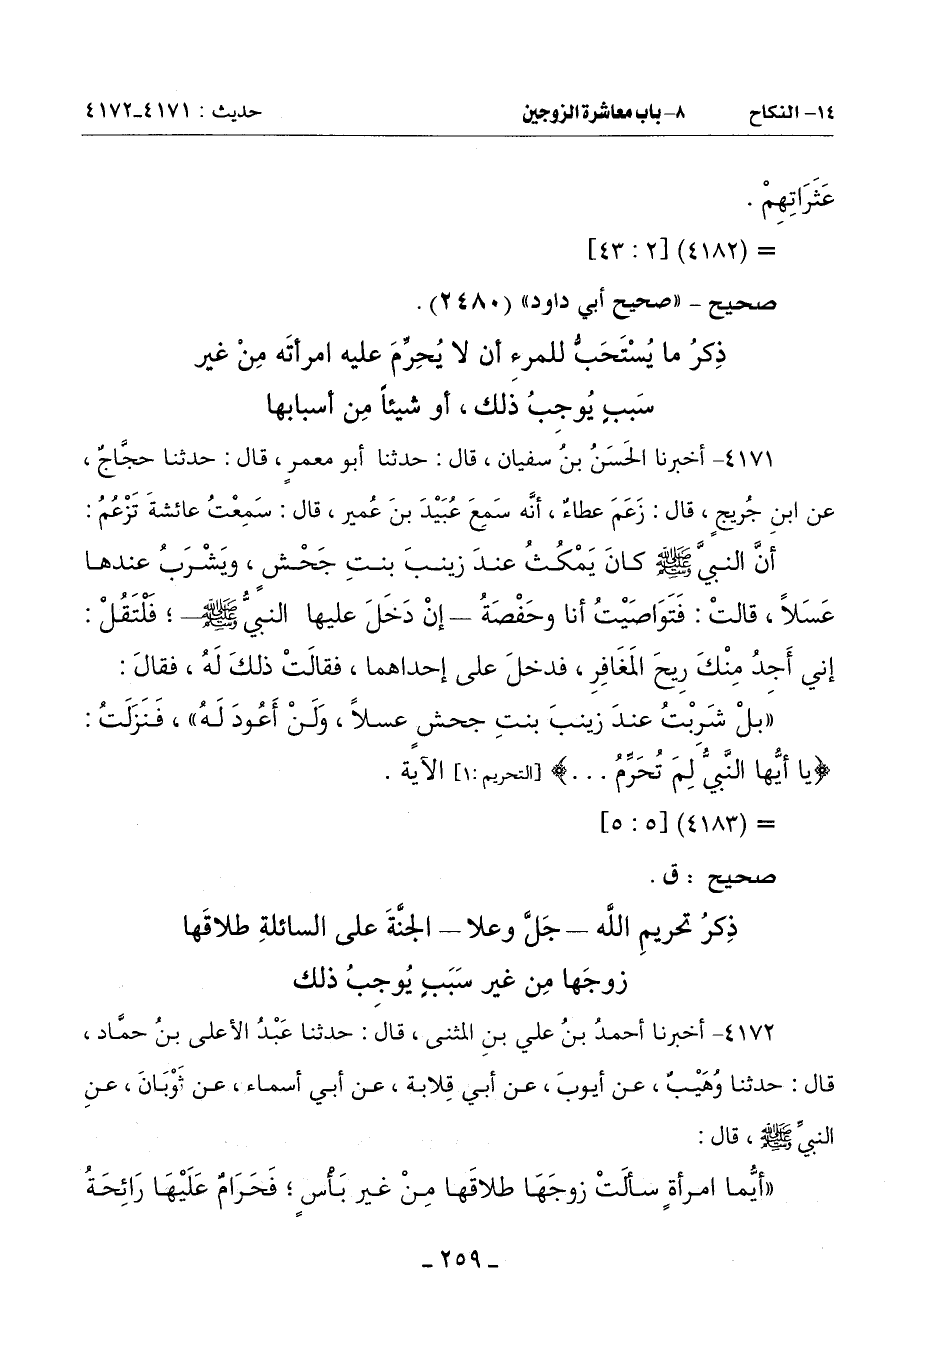 ١٤- النكاح ٨- باب معاشرة الزوجين حديث : ٤١٧١-٤١٧٢
عَثَرَاتِهِمْ .
= (٤١٨٢) [٢ : ٤٣]
صحيح - «صحيح أبي داود» (٢٤٨٠) .
ذِكرُ ما يُسْتَحَبُّ للمرءِ أن لا يُحرِّمَ عليه امرأتَه مِنْ غير
سَببٍ يُوجِبُ ذلك ، أو شيئاً مِن أسبابها
٤١٧١- أخبرنا الحَسَنُ بنُ سفيان ، قال : حدثنا أبو معمرٍ ، قال : حدثنا حجَّاجٌ ،
عن ابنِ جُريجٍ ، قال : زَعَمَ عطاءٌ ، أنَّه سَمِعَ عُبَيْدَ بنَ عُمير ، قال : سَمِعْتُ عائشةَ تَزْعُمُ :
أنَّ النبيَّ ﷺ كانَ يَمْكُثُ عندَ زينبَ بنتِ جَحْشٍ ، ويَشْرَبُ عندها
عَسَلاً ، قالتْ : فَتَوَاصَيْتُ أنا وحَفْصَةُ —إنْ دَخَلَ عليها النبيُّ ﷺ— ؛ فَلْتَقُلْ :
إني أَجدُ مِنْكَ رِيحَ المَغَافِر ، فدخلَ على إحداهما ، فقالَتْ ذلكَ لَهُ ، فقالَ :
«بلْ شَرِبْتُ عندَ زينبَ بنتِ جحشٍ عسلاً ، وَلَنْ أَعُودَ لَهُ» ، فَنَزَلَتْ :
﴿يا أيُّها النَّبيُّ لِمَ تُحَرِّمُ . . .﴾ [التحريم :١] الآية .
= (٤١٨٣) [٥ : ٥]
صحيح : ق .
ذِكرُ تحريمِ اللَّه —جَلَّ وعلا— الجنَّةَ على السائلةِ طلاقَها
زوجَها مِن غير سَبَبٍ يُوجِبُ ذلك
٤١٧٢- أخبرنا أحمدُ بنُ علي بنِ المثنى ، قال : حدثنا عَبْدُ الأعلى بنُ حمَّاد ،
قال : حدثنا وُهَيْبٌ ، عن أيوبَ ، عن أبي قِلابة ، عن أبي أسماء ، عن ثَوْبَانَ ، عنِ
النبيِّ ﷺ ، قال :
«أيُّما امرأةٍ سألَتْ زوجَهَا طلاقَها مِنْ غيرِ بَأْسٍ ؛ فَحَرَامٌ عَلَيْهَا رَائِحَةُ
- ٢٥٩ -